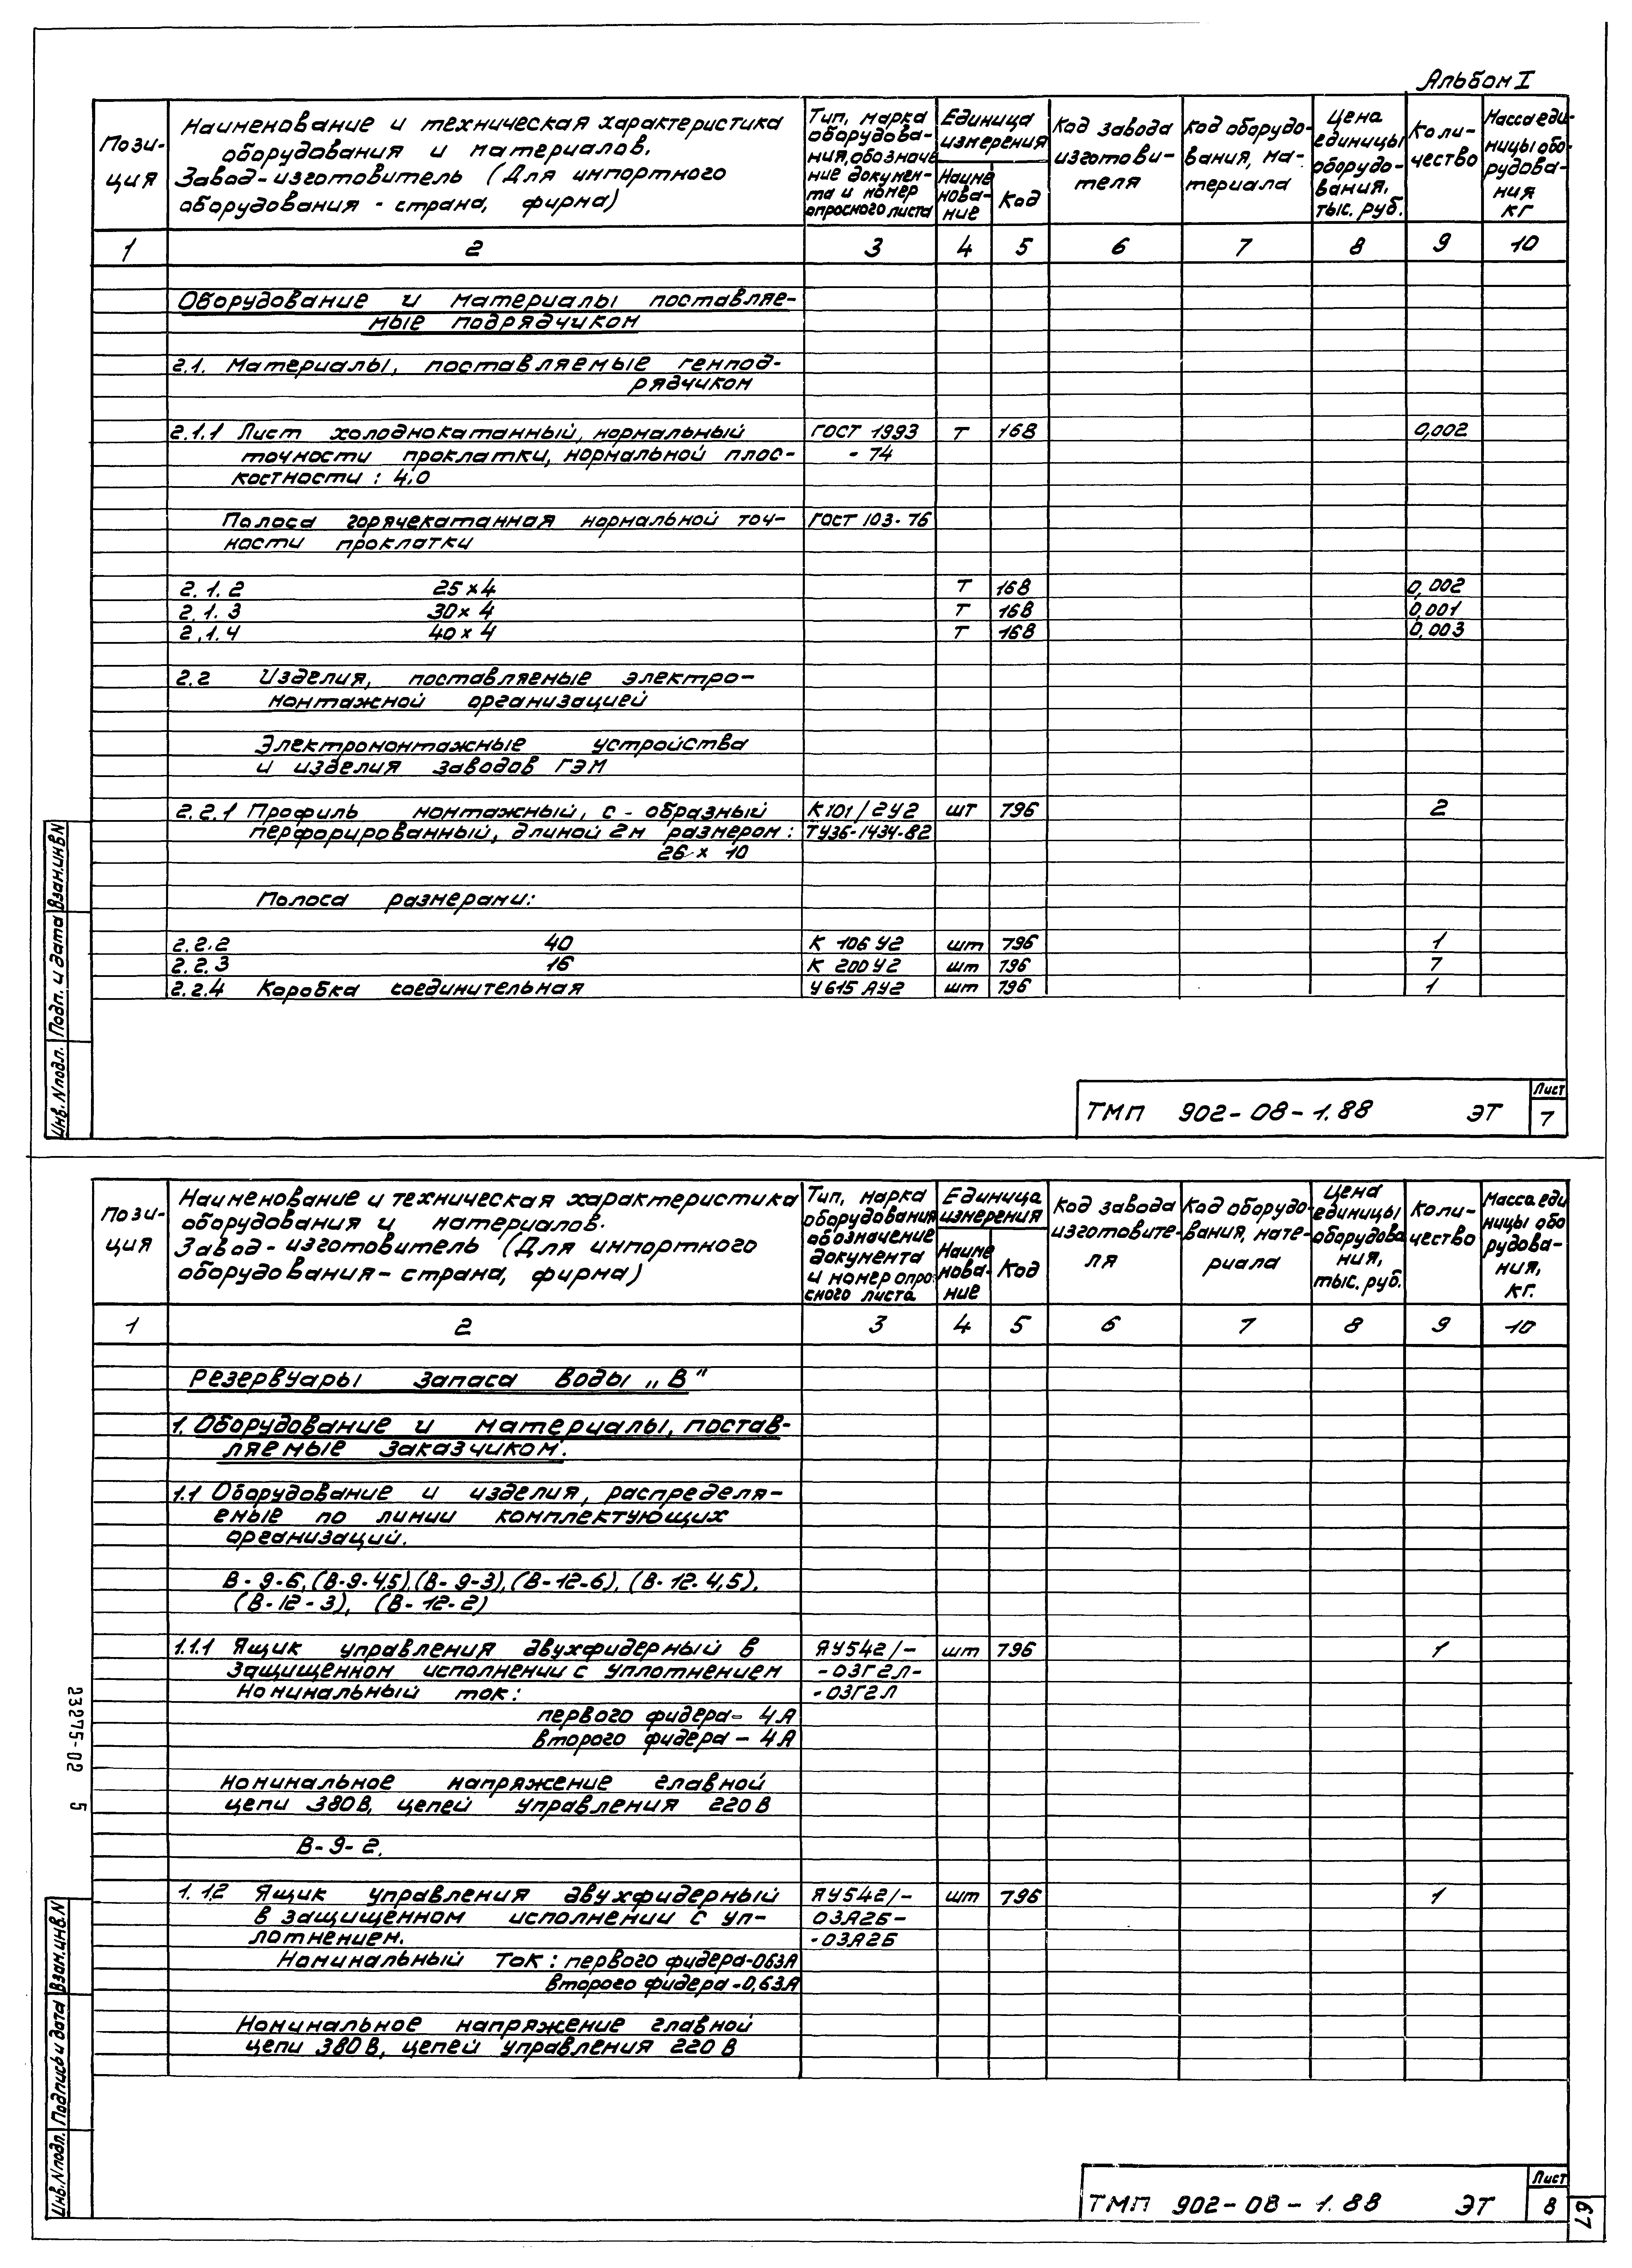 Альбом I
Пози-
ция
Наименование и техническая характеристика
оборудования и материалов.
Завод-изготовитель (Для импортного
оборудования - страна, фирма)
Тип, марка
оборудова-
ния, обозначе
ние докумен-
та и номер
опросного листа
Единица
измерения
Наиме
нова-
ние
Код
Код завода
изготови-
теля
Код оборудо-
вания, ма-
териала
Цена
единицы
оборудо-
вания,
тыс. руб.
Коли-
чество
Масса еди-
ницы обо-
рудова-
ния
кг
1 2 3 4 5 6 7 8 9 10
Оборудование и материалы поставляе-
мые подрядчиком
2.1. Материалы, поставляемые генпод-
рядчиком
2.1.1 Лист холоднокатанный, нормальный ГОСТ 1993 Т 168 0,002
точности проклатки, нормальной плос- - 74
костности : 4,0
Полоса горячекатанная нормальной точ- ГОСТ 103-76
ности проклатки
2.1.2 25 х 4 Т 168 0,002
2.1.3 30 х 4 Т 168 0,001
2.1.4 40 х 4 Т 168 0,003
2.2 Изделия, поставляемые электро-
монтажной организацией
Электромонтажные устройства
и изделия заводов ГЭМ
2.2.1 Профиль монтажный, с - образный К101/2У2 шт 796 2
перфорированный, длиной 2м размером : ТУ36-1434-82
26 х 10
Полоса размерами:
2.2.2 40 К 106 У2 шт 796 1
2.2.3 16 К 200 У2 шт 796 7
2.2.4 Коробка соединительная У615 АУ2 шт 796 1
Инв. N подл. Подп. и дата Взам.инв.N
ТМП 902-08-1.88 ЭТ
Лист
7
Пози-
ция
Наименование и техническая характеристика
оборудования и материалов.
Завод-изготовитель (Для импортного
оборудования- страна, фирма)
Тип, марка
оборудования
обозначение
документа
и номер опро-
сного листа
Единица
измерения
Наиме
нова-
ние
Код
Код завода
изготовите-
ля
Код оборудо-
вания, мате-
риала
Цена
единицы
оборудова
ния,
тыс. руб.
Коли-
чество
Масса еди
ницы обо
рудова-
ния,
кг.
1 2 3 4 5 6 7 8 9 10
Резервуары запаса воды „В"
1. Оборудование и материалы, постав-
ляемые заказчиком.
1.1 Оборудование и изделия, распределя-
емые по линии комплектующих
организаций.
В-9-6, (В-9-4,5), (В-9-3), (В-12-6), (В-12-4,5),
(В-12-3), (В-12-2)
1.1.1 Ящик управления двухфидерный в ЯУ542/- шт 796 1
защищенном исполнении с уплотнением -03Г2Л-
Номинальный ток : -03Г2Л
первого фидера- 4А
второго фидера - 4А
Номинальное напряжение главной
цепи 380В, цепей управления 220 В
В-9-2.
1.1.2 Ящик управления двухфидерный ЯУ542/- шт 796 1
в защищенном исполнении с уп- 03А2Б-
лотнением. -03А2Б
Номинальный ток : первого фидера-063А
второго фидера -0,63А
Номинальное напряжение главной
цепи 380В, цепей управления 220 В
23275-02 5
Инв. N подл. Подпись и дата Взам.инв.N
ТМП 902-08-1.88 ЭТ
Лист
8
67